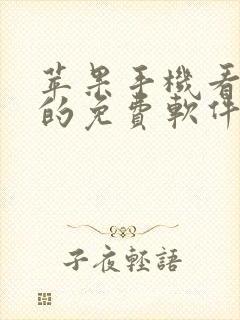 苹果手機看
的免費軟件
子夜輕語